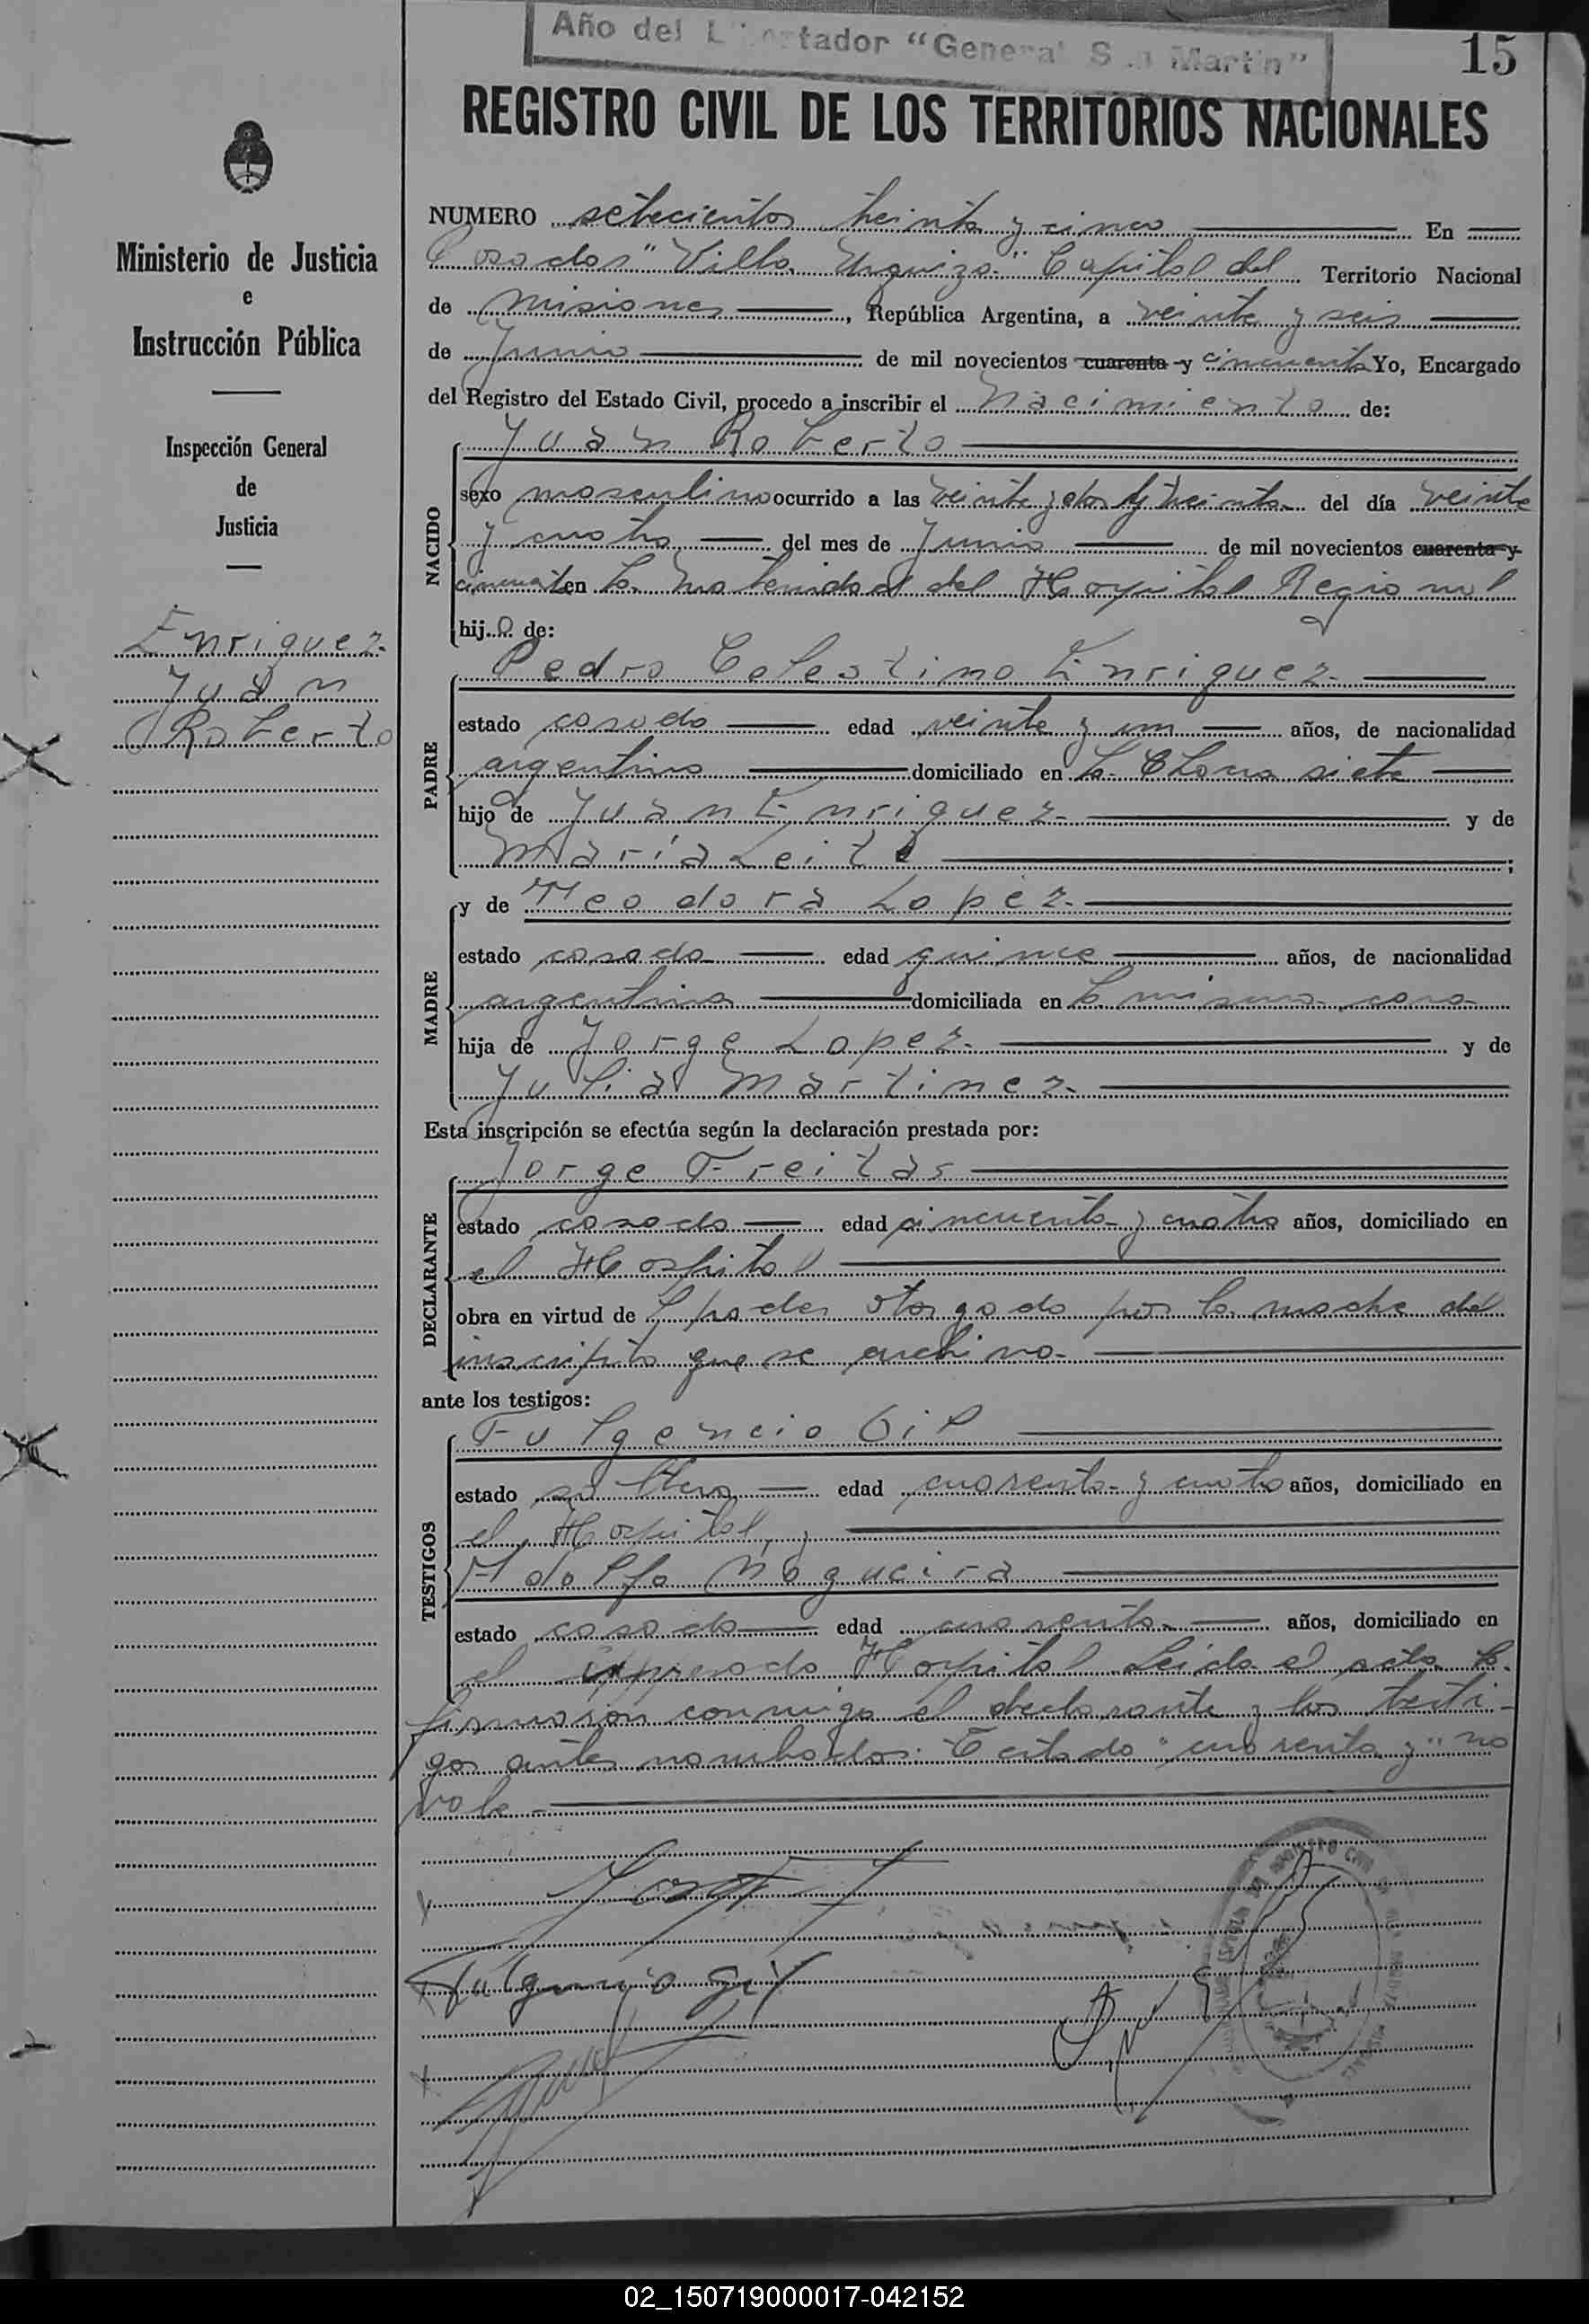 Año del Libertador "General San Martín"
15
REGISTRO CIVIL DE LOS TERRITORIOS NACIONALES
Ministerio de Justicia
e
Instrucción Pública
Inspección General
de
Justicia
Enriquez
Juan
Roberto
NUMERO setecientos treinta y cinco En
Posadas "Villa Urquiza" Capital del Territorio Nacional
de Misiones, República Argentina, a veinte y seis
de Junio de mil novecientos cuarenta y cincuenta Yo, Encargado
del Registro del Estado Civil, procedo a inscribir el Nacimiento de:
NACIDO
Juan Roberto
sexo masculino ocurrido a las veinte y dos y treinta del día veinte
y cuatro del mes de Junio de mil novecientos cuarenta y
cincuenta en la Maternidad del Hospital Regional
hijo de:
PADRE
Pedro Celestino Enriquez
estado casado edad veinte y un años, de nacionalidad
argentino domiciliado en la Chacra siete
hijo de Juan Enriquez y de
María Leite;
MADRE
y de Teodora Lopez
estado casada edad quince años, de nacionalidad
argentina domiciliada en la misma casa
hija de Jorge Lopez y de
Julia Martinez
Esta inscripción se efectúa según la declaración prestada por:
DECLARANTE
Jorge Freitas
estado casado edad cincuenta y cuatro años, domiciliado en
el Hospital
obra en virtud de poder otorgado por la madre del
inscripto que se archiva
ante los testigos:
TESTIGOS
Fulgencio Gil
estado soltero edad cuarenta y cuatro años, domiciliado en
el Hospital, y
Adolfo Nogueira
estado casado edad cuarenta años, domiciliado en
el expresado Hospital Leida el acta la
firmaron conmigo el declarante y los testi-
gos antes nombrados. Testado "cuarenta y" no
vale
Fulgencio Gil
02_150719000017-042152